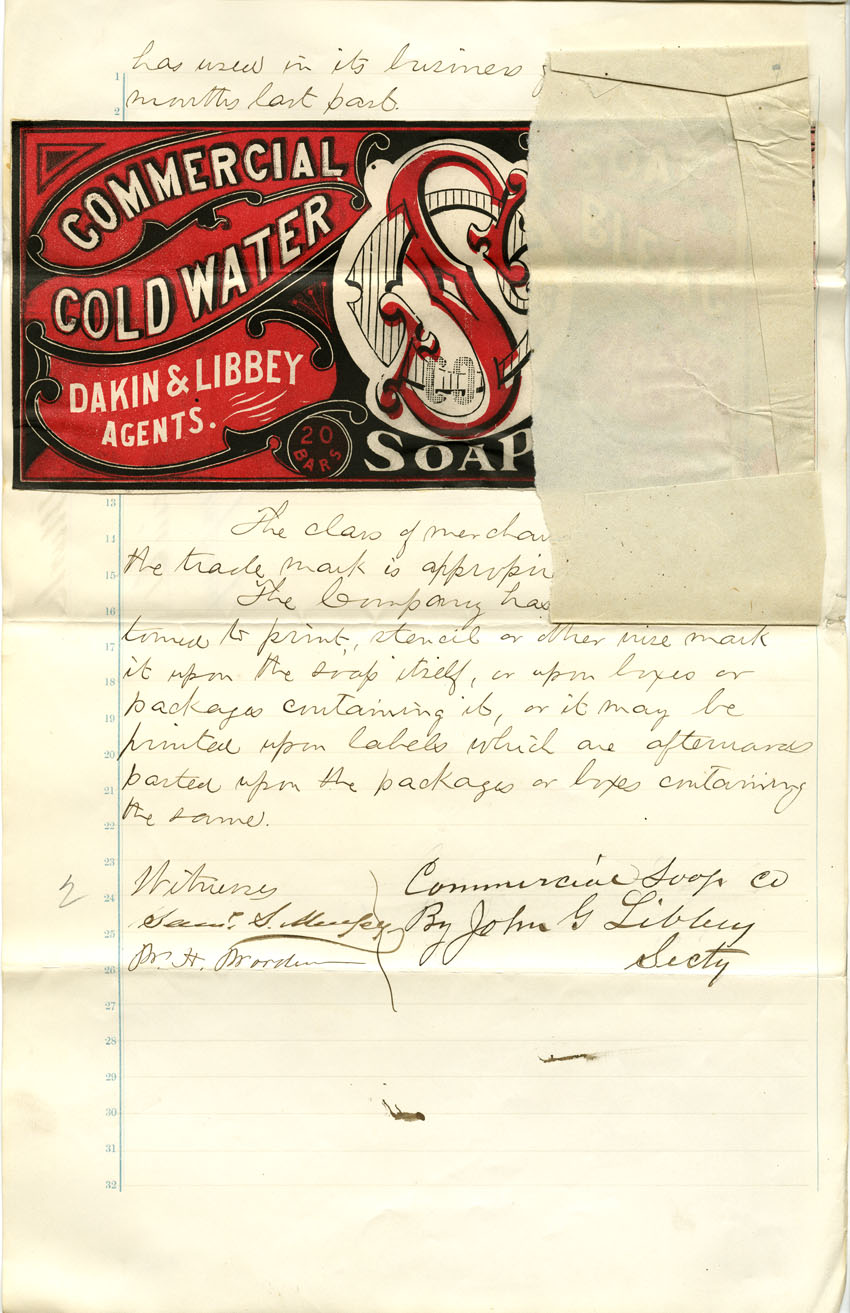 has used in its business
months last past.
COMMERCIAL
COLD WATER
DAKIN & LIBBEY
AGENTS.
20
BARS
Co
SOAP
The class of merchan
the trade mark is appropri
The Company has
tomed to print, stencil or other wise mark
it upon the soap itself, or upon boxes or
packages containing it, or it may be
printed upon labels which are afterwards
pasted upon the packages or boxes containing
the same.
2
Witnesses
Commercial Soap Co
Saml. S.
By John G Libbey
Secty
1
2
13
14
15
16
17
18
19
20
21
22
23
24
25
26
27
28
29
30
31
32